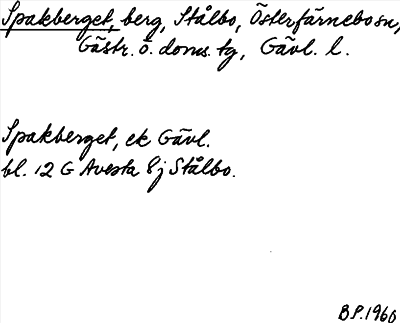 Spakberget, berg, Stålbo, Österfärnebo sn,
Gästr. ö. doms. tg, Gävl. l.
Spakberget, ek Gävl.
bl. 12 G Avesta 8j Stålbo.
B P. 1960